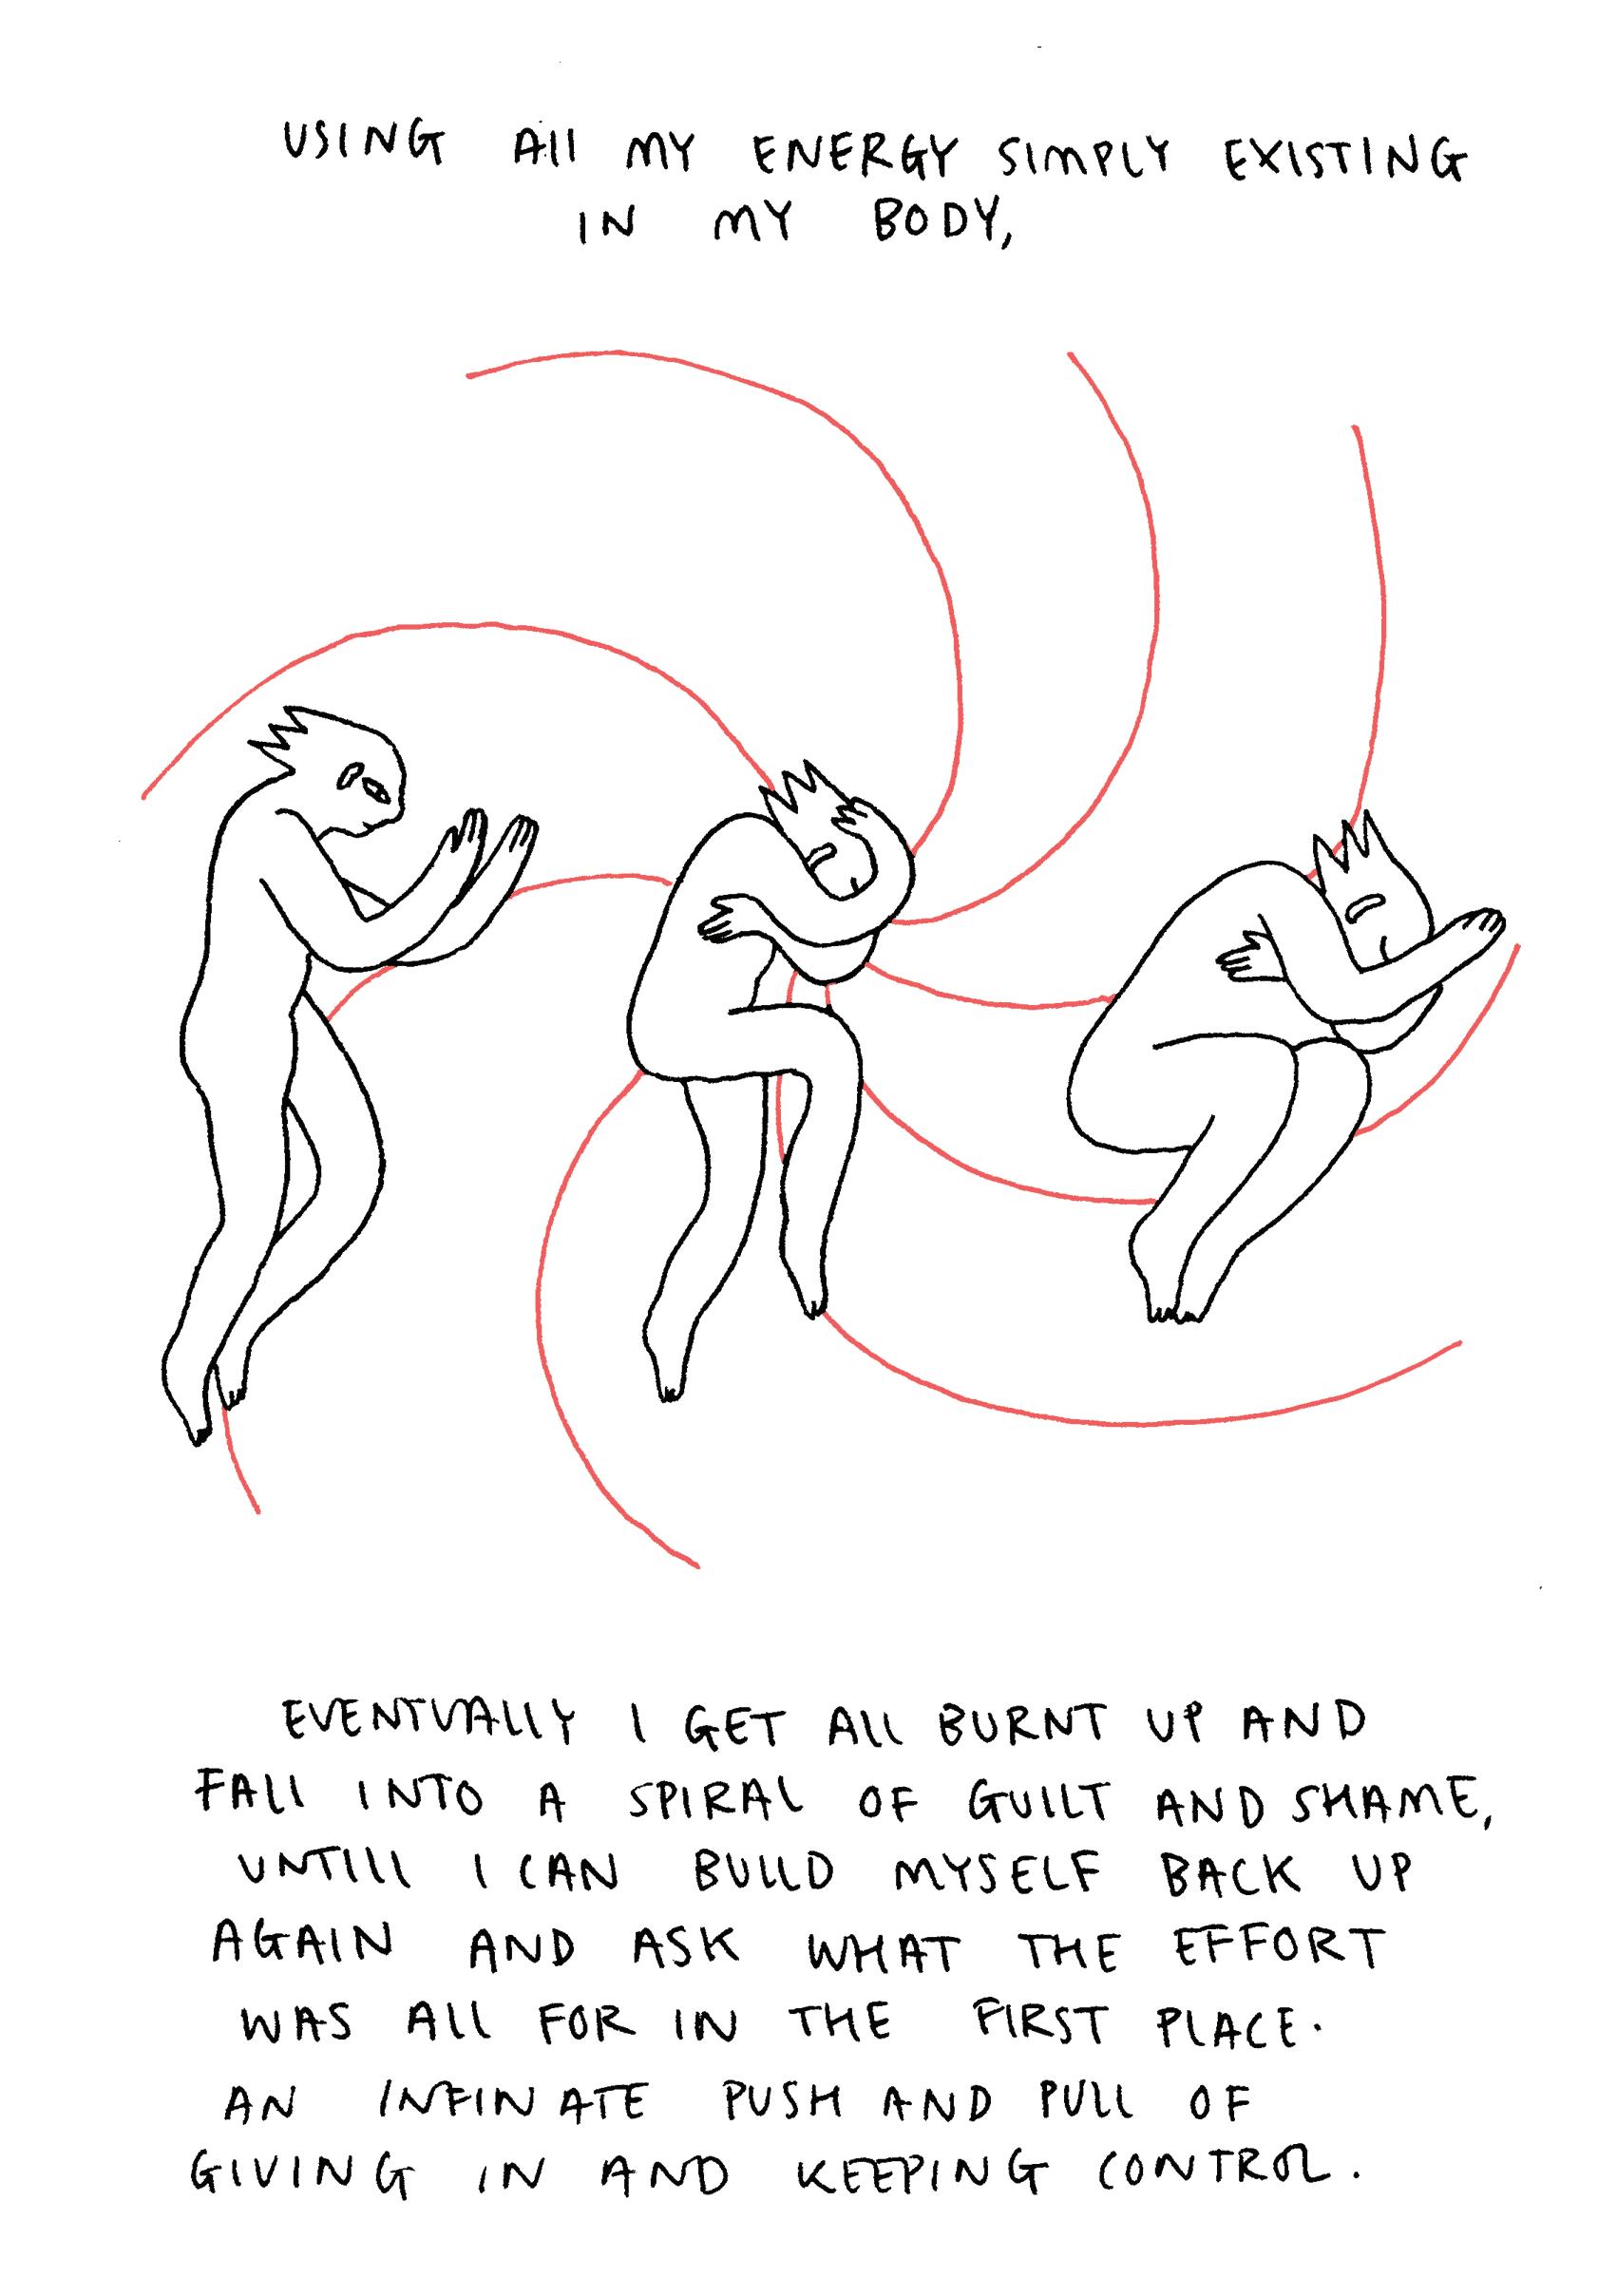 USING All MY ENERGY SIMPLY EXISTING
IN MY BODY,
EVENTUALLY I GET ALL BURNT UP AND
FALL INTO A SPIRAL OF GUILT AND SHAME,
UNTILL I CAN BUILD MYSELF BACK UP
AGAIN AND ASK WHAT THE EFFORT
WAS ALL FOR IN THE FIRST PLACE.
AN INFINATE PUSH AND PULL OF
GIVING IN AND KEEPING CONTROL.